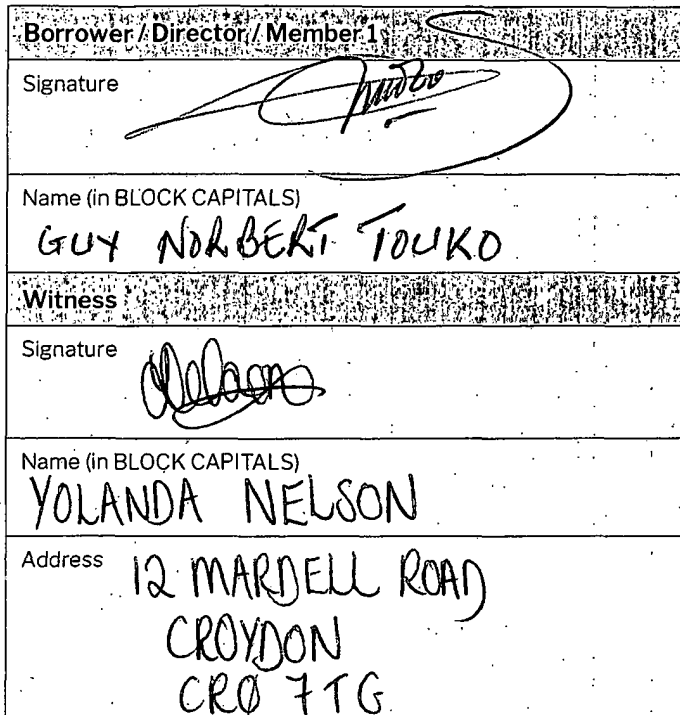 Borrower / Director / Member 1
Signature
Name (in BLOCK CAPITALS)
GUY NORBERT TOUKO
Witness
Signature
Name (in BLOCK CAPITALS)
YOLANDA NELSON
Address 12 MARDELL ROAD
CROYDON
CRØ 7TG